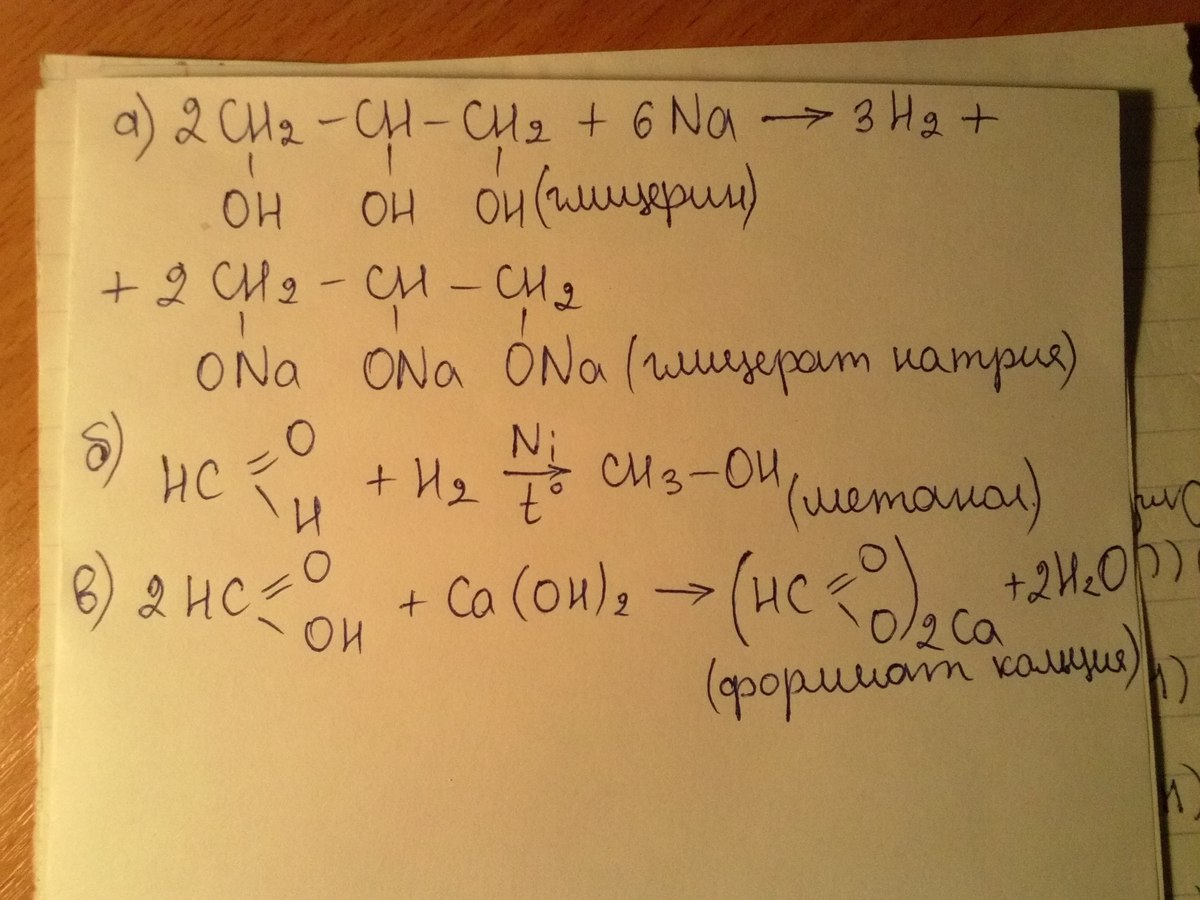 а) 2CH2 – CH – CH2 + 6Na → 3H2 +
OH OH OH (глицерин)
+ 2CH2 – CH – CH2
ONa ONa ONa (глицерат натрия)
O
б) HC + H2 Ni → t° CH3–OH (метанол)
H
O O
в) 2HC + Ca(OH)2 → (HC )2Ca +2H2O
OH O
(формиат кальция)